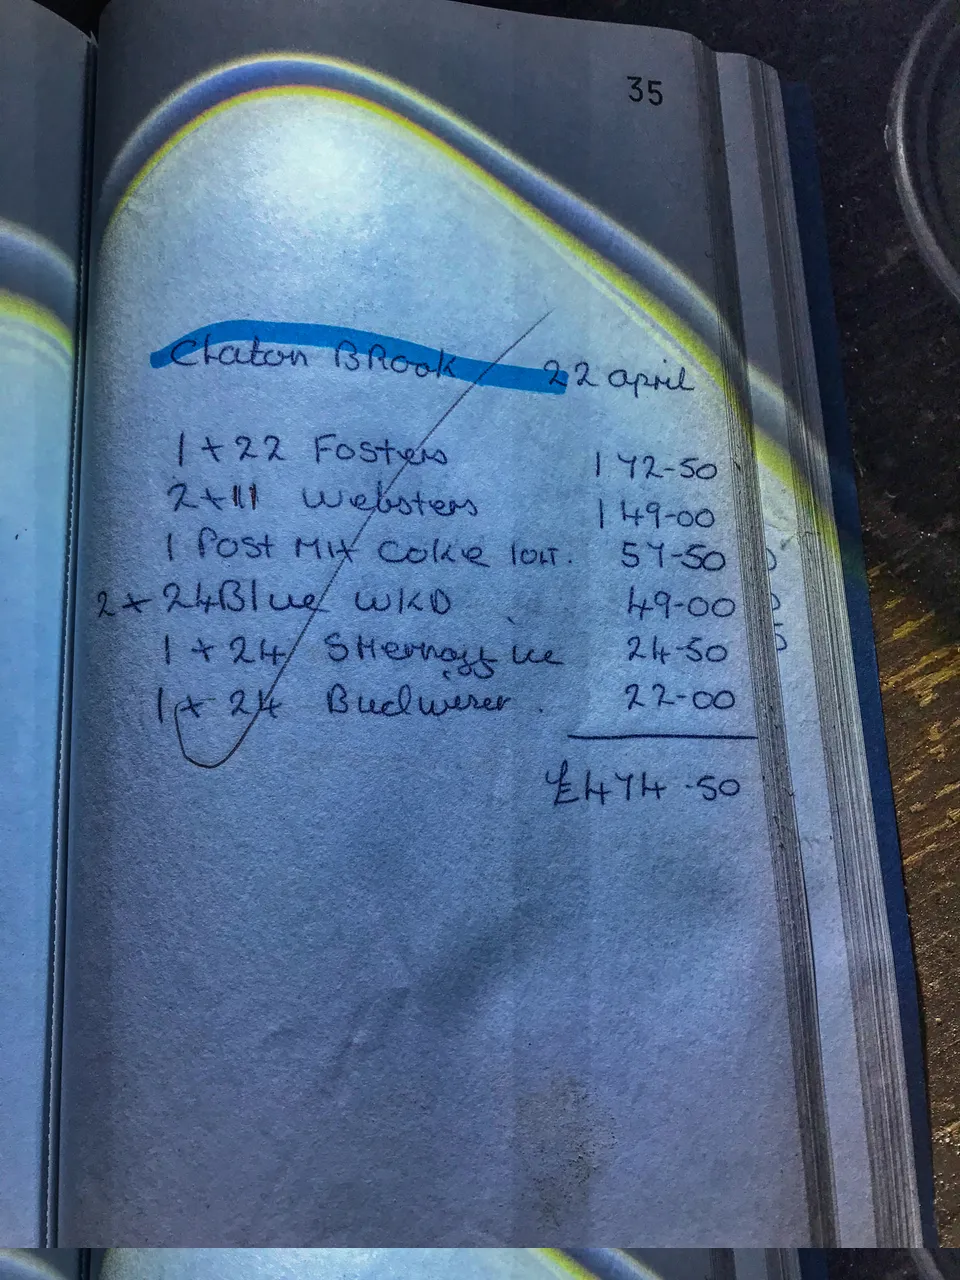 35
Claton BRook 22 april
1 x 22 Fosters 172-50
2 x 11 Websters 149-00
1 Post Mix Coke 10LT. 57-50
2 x 24 Blue WKD 49-00
1 x 24 SMernoff ice 24-50
1 x 24 Budwerer. 22-00
£474-50